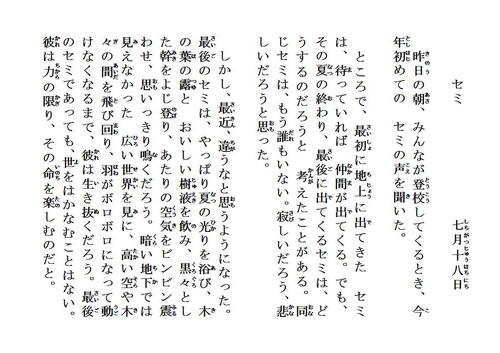 セミ　七月十八日
昨日の朝、みんなが登校してくるとき、今
年初めての　セミの声を聞いた。
ところで、最初に地上に出てきた　セミ
は、待っていれば　仲間が出てくる。でも、
その夏の終わり、最後に出てくるセミは、ど
うするのだろうと　考えたことがある。同
じセミは、もう誰もいない。寂しいだろう、悲
しいだろうと思った。
しかし、最近、違うなと思うようになった。
最後のセミは、やっぱり夏の光りを浴び、木
の葉の露と　おいしい樹液を飲み、黒々とし
た幹をよじ登り、あたりの空気をビンビン震
わせ、思いっきり鳴くだろう。暗い地下では
見えなかった　広い世界を見に、高い空や木
々の間を飛び回り、羽がボロボロになって動
けなくなるまで、彼は生き抜くだろう。最後
のセミであっても、世をはかなむことはない。
彼は力の限り、その命を楽しむのだと。